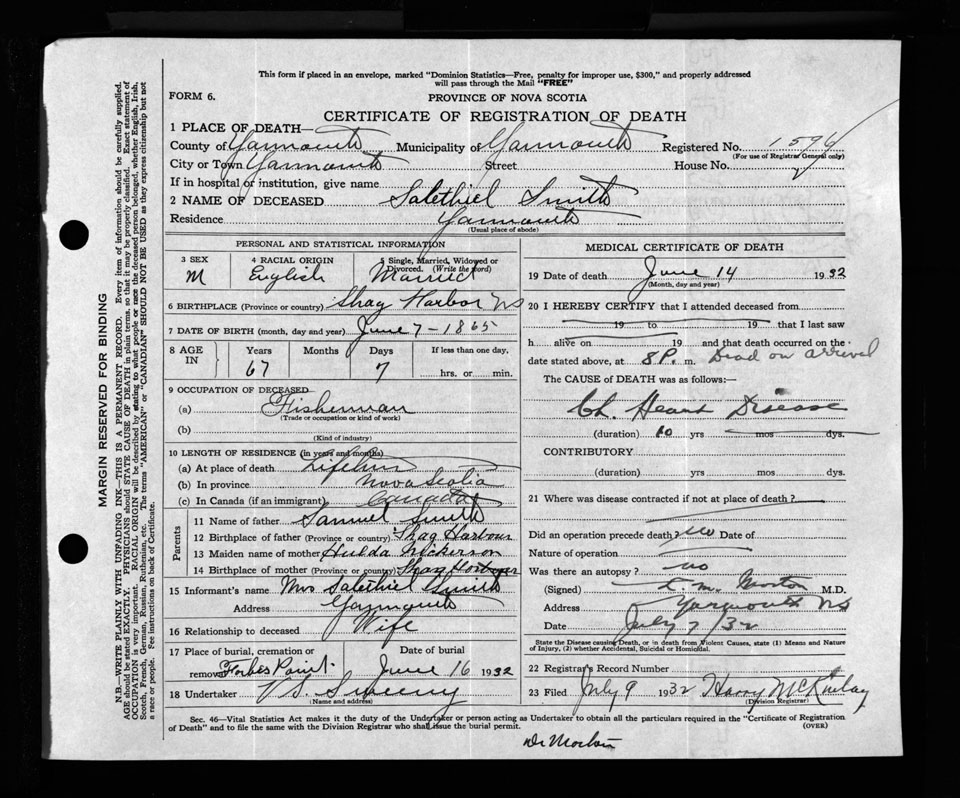 This form if placed in an envelope, marked "Dominion Statistics—Free, penalty for improper use, $300," and properly addressed
will pass through the Mail "FREE"
FORM 6.
PROVINCE OF NOVA SCOTIA
CERTIFICATE OF REGISTRATION OF DEATH
1 PLACE OF DEATH—
County of Yarmouth Municipality of Yarmouth Registered No. 1594
(For use of Registrar General only)
City or Town Yarmouth Street House No.
If in hospital or institution, give name
2 NAME OF DECEASED Salethiel Smith
Residence Yarmouth
(Usual place of abode)
PERSONAL AND STATISTICAL INFORMATION
3 SEX 4 RACIAL ORIGIN 5 Single, Married, Widowed or Divorced. (Write the word)
M English Married
6 BIRTHPLACE (Province or country) Shag Harbor NS
7 DATE OF BIRTH (month, day and year) June 7 - 1865
8 AGE IN Years Months Days If less than one day,
67 7 hrs. or min.
9 OCCUPATION OF DECEASED
(a) Fisherman
(Trade or occupation or kind of work)
(b)
(Kind of industry)
10 LENGTH OF RESIDENCE (in years and months)
(a) At place of death Lifetime
(b) In province Nova Scotia
(c) In Canada (if an immigrant) Canada
Parents
11 Name of father Samuel Smith
12 Birthplace of father (Province or country) Shag Harbour
13 Maiden name of mother Hulda Nickerson
14 Birthplace of mother (Province or country) Shag Harbour
15 Informant's name Mrs Salethiel Smith
Address Yarmouth
16 Relationship to deceased Wife
17 Place of burial, cremation or removal Date of burial
Forbes Point June 16 1932
18 Undertaker V S. Sweeny
(Name and address)
MEDICAL CERTIFICATE OF DEATH
19 Date of death June 14 1932
(Month, day and year)
20 I HEREBY CERTIFY that I attended deceased from
19 to 19 that I last saw
h alive on 19 and that death occurred on the
date stated above, at 8 P. m. Dead on arrival
The CAUSE of DEATH was as follows:—
Ch. Heart Disease
(duration) 10 yrs mos dys.
CONTRIBUTORY
(duration) yrs. mos. dys.
21 Where was disease contracted if not at place of death?
Did an operation precede death? No Date of
Nature of operation
Was there an autopsy? no
(Signed) Morton M.D.
Address Yarmouth NS
Date July 7/32
State the Disease causing Death, or in death from Violent Causes, state (1) Means and Nature
of Injury, (2) whether Accidental, Suicidal or Homicidal.
22 Registrar's Record Number
23 Filed July 9 1932 Harry McKinlay
(Division Registrar)
Sec. 46—Vital Statistics Act makes it the duty of the Undertaker or person acting as Undertaker to obtain all the particulars required in the "Certificate of Registration
of Death" and to file the same with the Division Registrar who shall issue the burial permit. (OVER)
Dr Morton
MARGIN RESERVED FOR BINDING
N.B.—WRITE PLAINLY WITH UNFADING INK—THIS IS A PERMANENT RECORD. Every item of information should be carefully supplied.
AGE should be stated EXACTLY. PHYSICIANS should STATE CAUSE OF DEATH in plain terms, so that it may be properly classified. Exact statement of
OCCUPATION is very important. RACIAL ORIGIN will be described by stating to what people or race the deceased person belonged, whether English, Irish,
Scotch, French, German, Russian, Ruthenian, etc. The terms "AMERICAN" or "CANADIAN" SHOULD NOT BE USED as they express citizenship but not
a race or people. See instructions on back of Certificate.